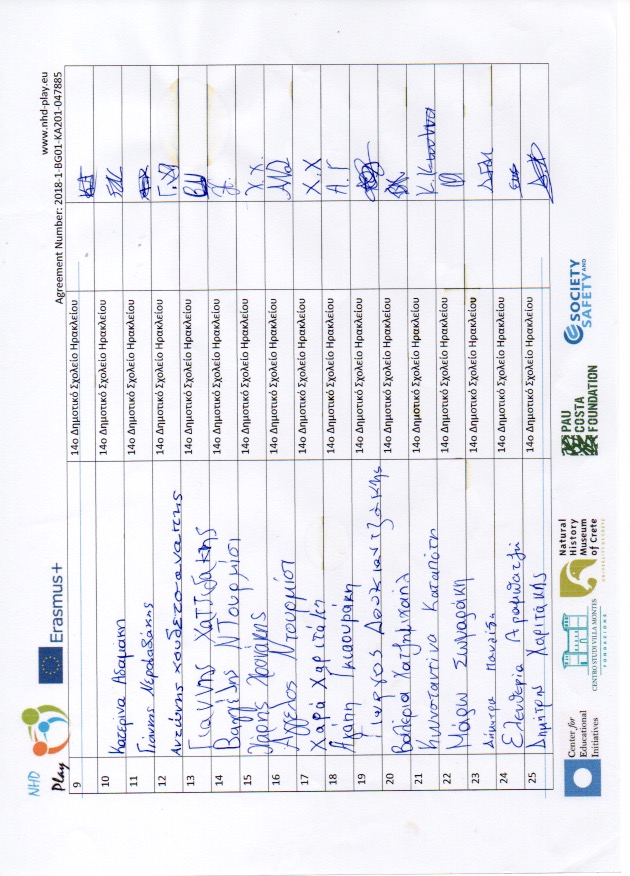 NHD
Play
Erasmus+
www.nhd-play.eu
Agreement Number: 2018-1-BG01-KA201-047885
9 14ο Δημοτικό Σχολείο Ηρακλείου
10 Κατερίνα Αδαμάκη 14ο Δημοτικό Σχολείο Ηρακλείου
11 Γιάννης 14ο Δημοτικό Σχολείο Ηρακλείου
12 Αντώνης 14ο Δημοτικό Σχολείο Ηρακλείου Γ.Χ
13 Γιάννης Χατζιδάκης 14ο Δημοτικό Σχολείο Ηρακλείου
14 Βαγγέλης Ντουρμίσι 14ο Δημοτικό Σχολείο Ηρακλείου
15 Χρήστος 14ο Δημοτικό Σχολείο Ηρακλείου Χ.Χ.
16 Άγγελος Ντουρμίσι 14ο Δημοτικό Σχολείο Ηρακλείου
17 Χαρά Χαριτάκη 14ο Δημοτικό Σχολείο Ηρακλείου Χ.Χ
18 Αγάπη 14ο Δημοτικό Σχολείο Ηρακλείου Α.Γ
19 Γιώργος 14ο Δημοτικό Σχολείο Ηρακλείου
20 Βαλέρια Χατζημιχαήλ 14ο Δημοτικό Σχολείο Ηρακλείου
21 Κωνσταντίνα 14ο Δημοτικό Σχολείο Ηρακλείου
22 Μάρω 14ο Δημοτικό Σχολείο Ηρακλείου
23 Δήμητρα 14ο Δημοτικό Σχολείο Ηρακλείου
24 Ελευθερία 14ο Δημοτικό Σχολείο Ηρακλείου
25 Δημήτρης Χαριτάκης 14ο Δημοτικό Σχολείο Ηρακλείου
Center for
Educational
Initiatives
CENTRO STUDI VILLA MONTES
FONDAZIONE
Natural
History
Museum
of Crete
UNIVERSITY OF CRETE
PAU
COSTA
FOUNDATION
SOCIETY
AND
SAFETY